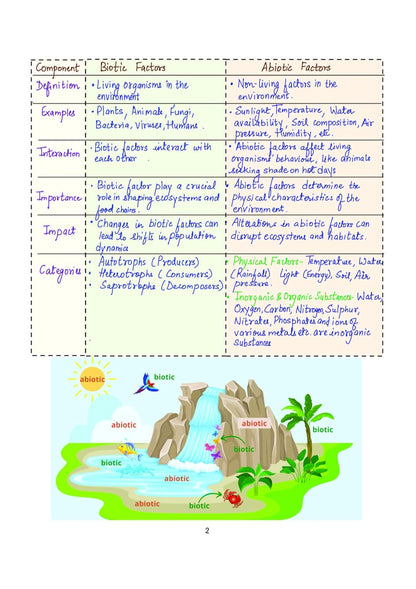 Component Biotic Factors Abiotic Factors
Definition
• Living organisms in the
environment
• Non-living factors in the
environment.
Examples
• Plants, Animals, Fungi,
Bacteria, Viruses, Humans.
• Sunlight, Temperature, Water
availability, Soil composition, Air
pressure, Humidity, etc.
Interaction
• Biotic factors interact with
each other.
• Abiotic factors affect living
organisms' behaviour, like animals
seeking shade on hot days
Importance
• Biotic factor play a crucial
role in shaping ecosystems and
food chains.
• Abiotic factors determine the
physical characteristics of the
environment.
Impact
• Changes in biotic factors can
lead to shifts in population
dynamia
Alterations in abiotic factors can
disrupt ecosystems and habitats.
Categories
• Autotrophs (Producers)
• Heterotrophs (Consumers)
• Saprotrophs (Decomposers)
Physical Factors- Temperature, Water
(Rainfall) light (Energy), Soil, Air
pressure.
• Inorganic & Organic Substances- Water,
Oxygen, Carbon, Nitrogen, Sulphur,
Nitrates, Phosphates and ions of
various metals etc. are inorganic
substances
abiotic
biotic
abiotic
abiotic
biotic
biotic
abiotic
abiotic
biotic
abiotic
2